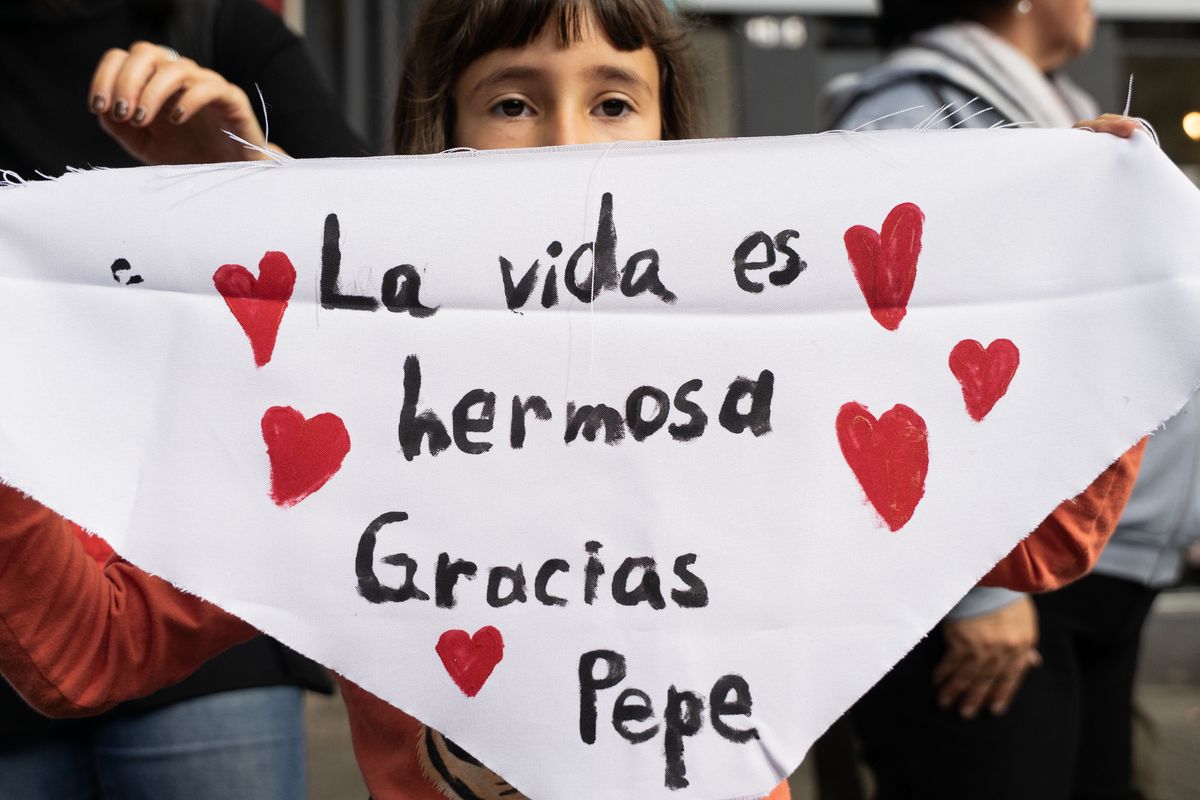 La vida es
hermosa
Gracias
Pepe